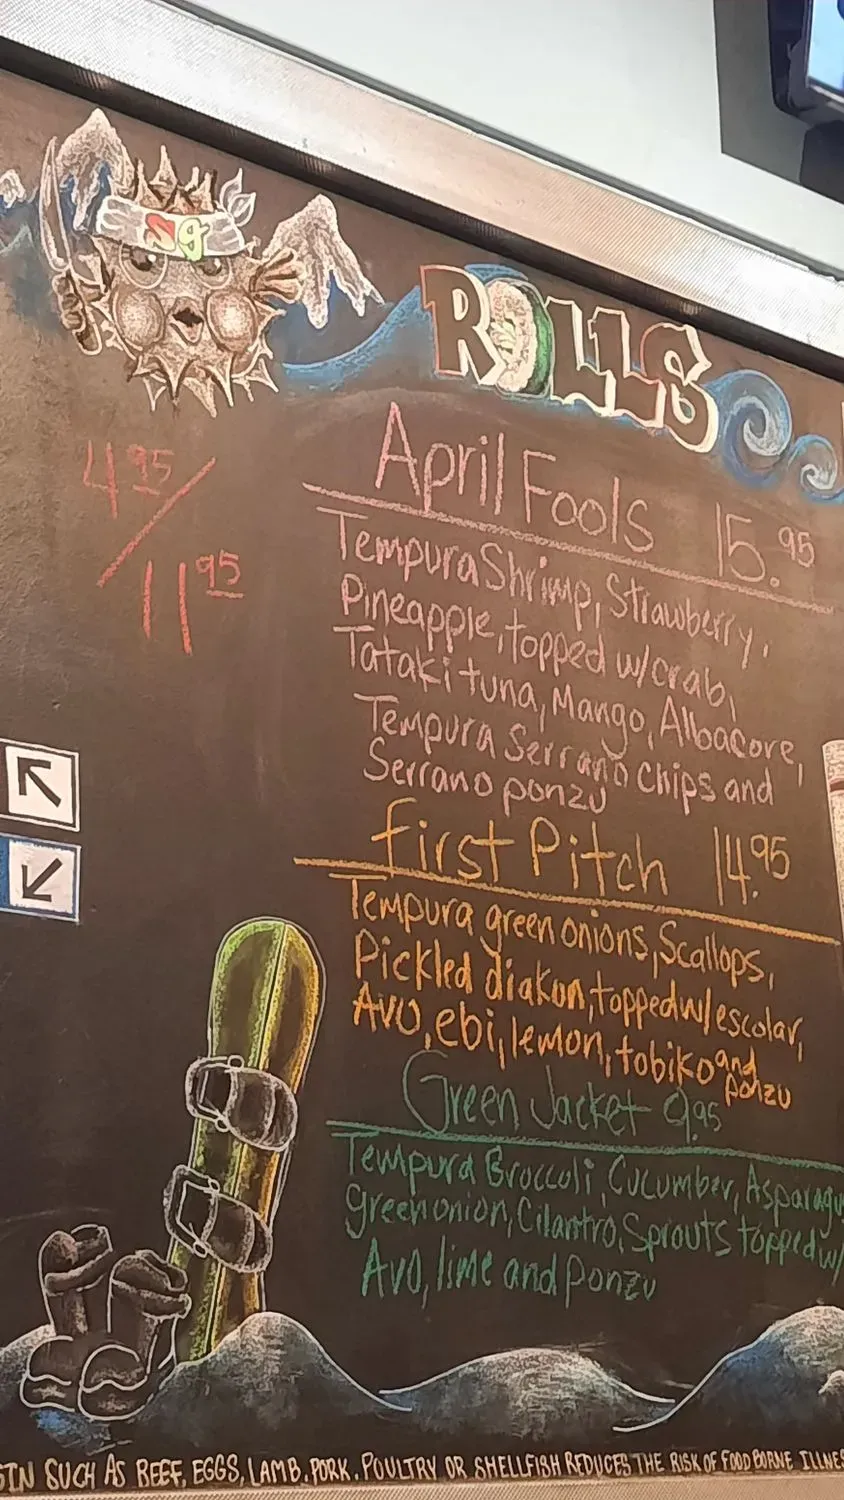 sg
ROLLS
4.95/
11.95
April Fools 15.95
Tempura Shrimp, Strawberry,
Pineapple, topped w/crab,
Tataki tuna, Mango, Albacore,
Tempura Serrano chips and
Serrano ponzu
First Pitch 14.95
Tempura green onions, Scallops,
Pickled diakon, topped w/escolar,
Avo, ebi, lemon, tobiko and
ponzu
Green Jacket 9.95
Tempura Broccoli, Cucumber, Asparagu
green onion, Cilantro, Sprouts topped w/
Avo, lime and ponzu
SUCH AS BEEF, EGGS, LAMB, PORK, POULTRY OR SHELLFISH REDUCES THE RISK OF FOOD BORNE ILLNES